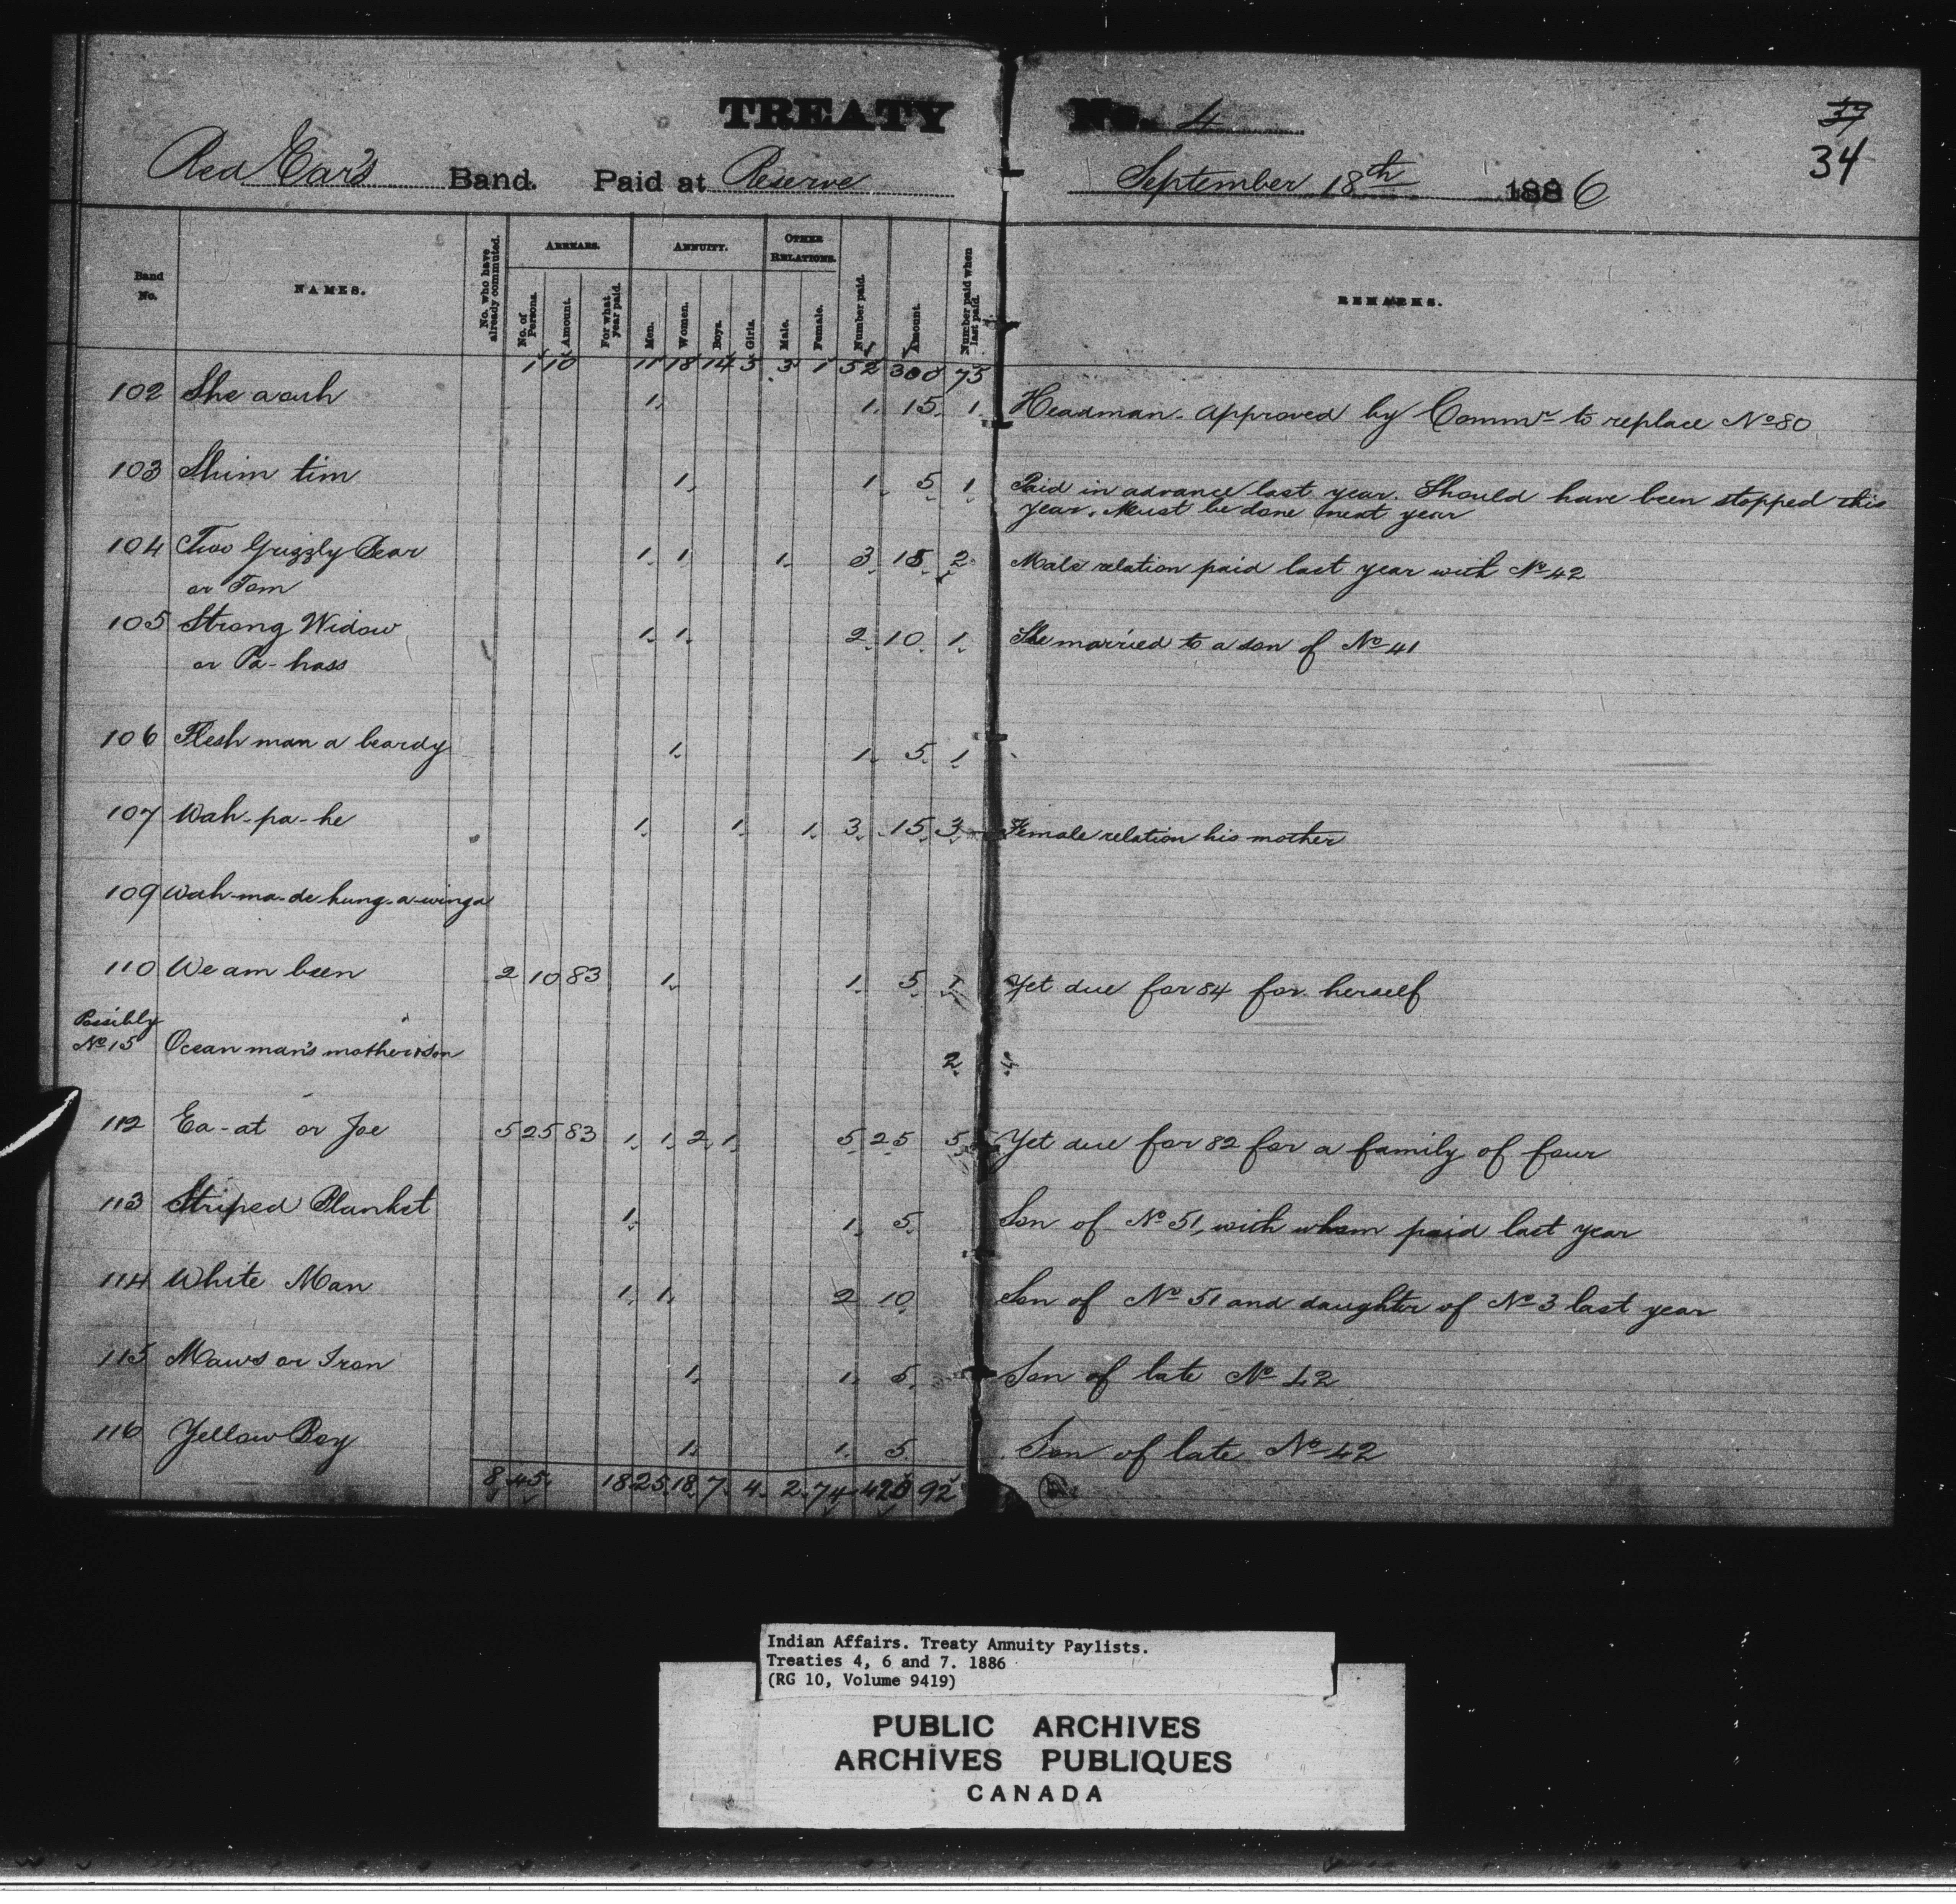 TREATY No. 4
37
34
Red Ear's Band. Paid at Reserve September 18th 1886
Band No. NAMES. No. who have already commuted. ARREARS. No. of Persons. Amount. For what year paid. ANNUITY. Men. Women. Boys. Girls. OTHER RELATIONS. Male. Female. Number paid. Amount. Number paid when last paid. REMARKS.
1 10 11 18 14 3 3 1 52 300 75
102 She a ouh 1. 1. 15. 1. Headman. Approved by Commr to replace No 80
103 Shim tim 1. 1. 5. 1. Paid in advance last year. Should have been stopped this
year. Must be done next year
104 Two Grizzly Bear 1. 1. 1. 3. 15. 2. Male relation paid last year with No 42
or Tom
105 Strong Widow 1. 1. 2. 10. 1. She married to a son of No 41
or Pa-hass
106 Flesh man a beardy 1. 1. 5. 1
107 Wah-pa-he 1. 1. 1. 3. 15. 3. Female relation his mother
109 Wah-ma-de-hung-a-winga
110 We am been 2 10 83 1. 1. 5. 1 Yet due for 84 for herself
Possibly
No 15 Ocean man's mother & son 2.
112 Ea-at or Joe 5 25 83 1. 1. 2. 1. 5. 25 5. Yet due for 82 for a family of four
113 Striped Blanket 1. 1. 5. Son of No 51, with whom paid last year
114 White Man 1. 1. 2 10. Son of No 51 and daughter of No 3 last year
115 Maws or Iron 1. 1. 5. Son of late No 42
116 Yellow Boy 1. 1. 5. Son of late No 42
8. 45. 18 25. 18. 7. 4. 2. 74 420 92
Indian Affairs. Treaty Annuity Paylists.
Treaties 4, 6 and 7. 1886
(RG 10, Volume 9419)
PUBLIC ARCHIVES
ARCHIVES PUBLIQUES
CANADA